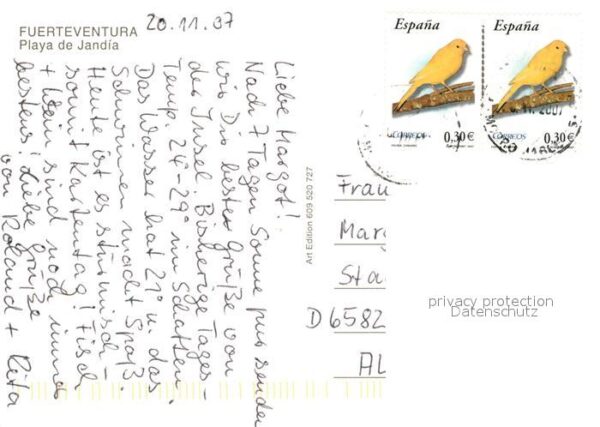 FUERTEVENTURA
Playa de Jandía
20.11.07
Liebe Margot!
Nach 7 Tagen Sonne pur senden
wir Dir beste Grüße von
der Insel. Bisherige Tages-
Temp. 24°-29° im Schatten.
Das Wasser hat 21° u. das
Schwimmen macht Spaß.
Heute ist es stürmisch –
somit Kartentag! Fisch
+ Wein sind noch immer
bestens! Liebe Grüße
von Roland + Rita
Art Edition 609 520 727
España
CORREOS
0,30 €
España
CORREOS
0,30 €
2007
Frau
Mar
Sta
D 6582
AL
privacy protection
Datenschutz